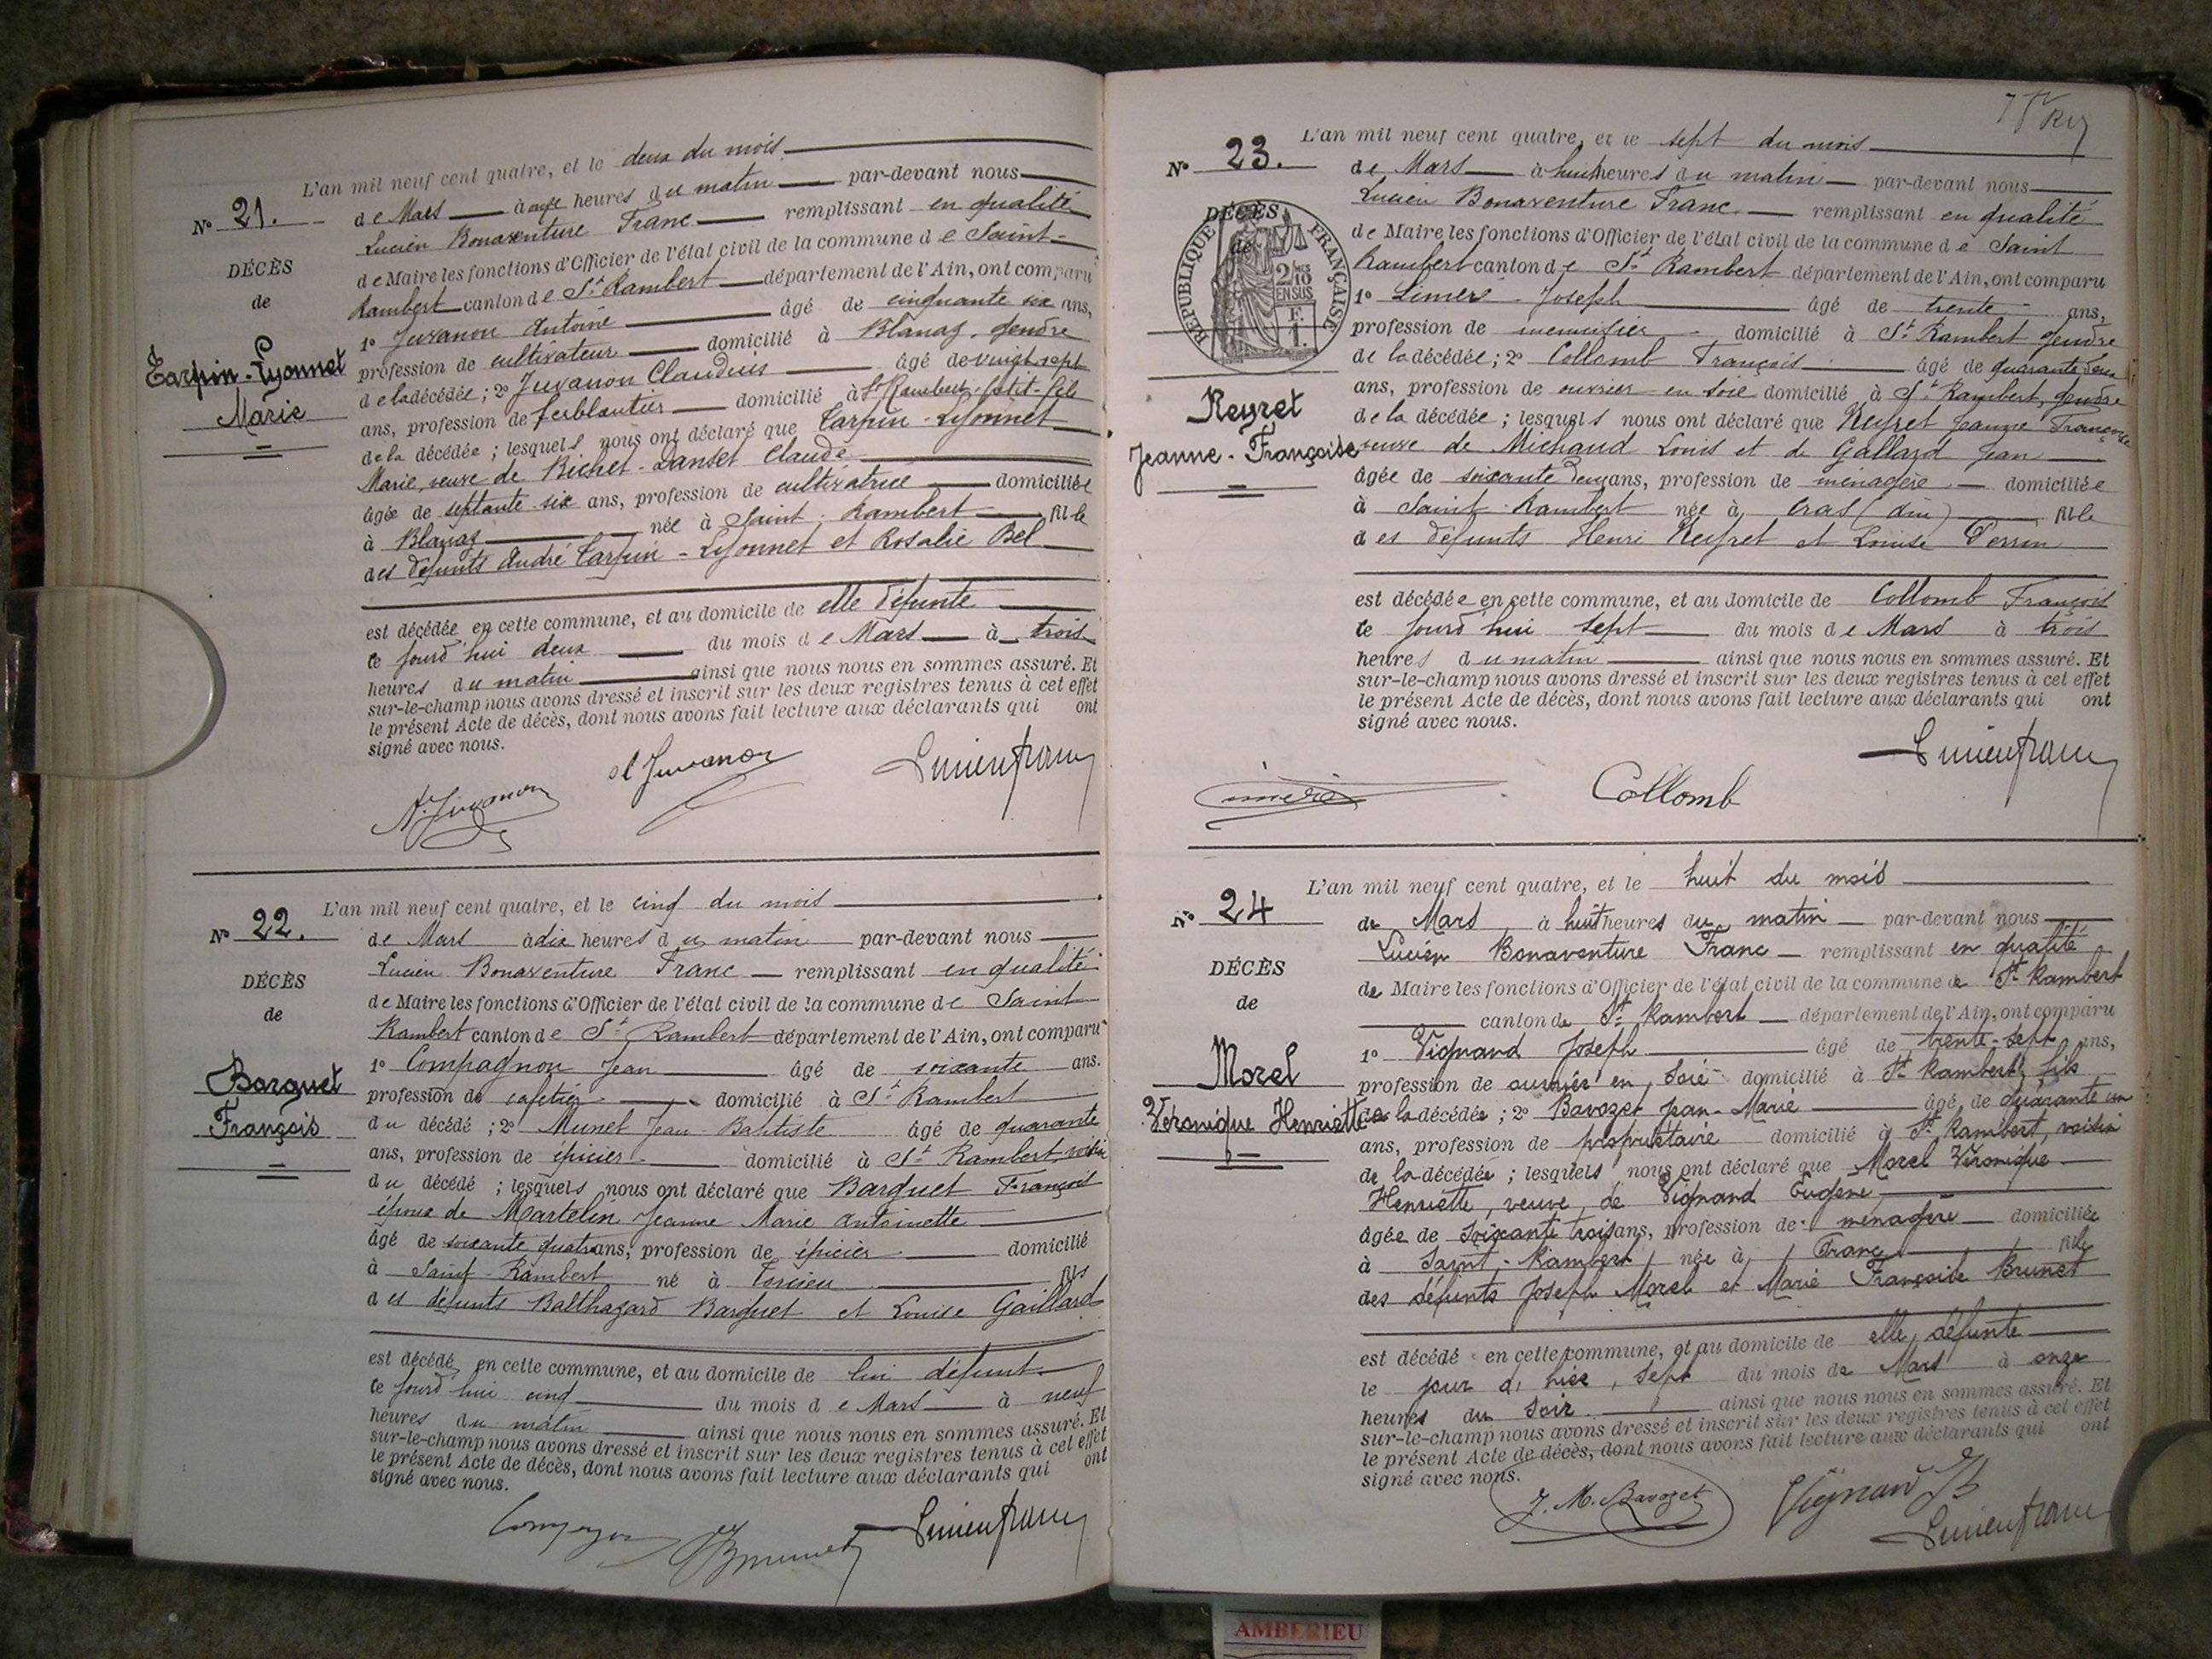 L'an mil neuf cent quatre, et le deux du mois
Nº 21. de Mars à onze heures du matin par-devant nous
Lucien Bonaventure Franc remplissant en qualité
de Maire les fonctions d'Officier de l'état civil de la commune de Saint-
Rambert canton de St Rambert département de l'Ain, ont comparu
1º Juvanon Antoine âgé de cinquante six ans,
profession de cultivateur domicilié à Blanaz, gendre
de la décédée ; 2º Juvanon Claudius âgé de vingt-sept
ans, profession de ferblantier domicilié à St Rambert, petit-fils
de la décédée ; lesquels nous ont déclaré que Tarpin-Lyonnet
Marie, veuve de Claude
âgée de septante-six ans, profession de cultivatrice domiciliée
à Blanaz née à Saint-Rambert fille
des défunts André Tarpin-Lyonnet et Rosalie Bel
DÉCÈS
de
Tarpin-Lyonnet
Marie
est décédée en cette commune, et au domicile de elle défunte
le jourd'hui deux du mois de Mars à trois
heures du matin ainsi que nous nous en sommes assuré. Et
sur-le-champ nous avons dressé et inscrit sur les deux registres tenus à cet effet
le présent Acte de décès, dont nous avons fait lecture aux déclarants qui ont
signé avec nous.
A. Juvanon Cl Juvanon Lucien Franc
L'an mil neuf cent quatre, et le cinq du mois
Nº 22. de Mars à dix heures du matin par-devant nous
Lucien Bonaventure Franc remplissant en qualité
de Maire les fonctions d'Officier de l'état civil de la commune de Saint
Rambert canton de St Rambert département de l'Ain, ont comparu
1º Compagnon Jean âgé de soixante ans.
profession de cafetier domicilié à St Rambert
du décédé ; 2º Munet Jean-Baptiste âgé de quarante
ans, profession de épicier domicilié à St Rambert, voisin
du décédé ; lesquels nous ont déclaré que Barquet François
époux de Martelin Jeanne Marie Antoinette
âgé de soixante quatre ans, profession de épicier domicilié
à Saint-Rambert né à Torcieu fils
des défunts Balthazard Barquet et Louise Gaillard
DÉCÈS
de
Barquet
François
est décédé en cette commune, et au domicile de lui défunt
le jourd'hui cinq du mois de Mars à neuf
heures du matin ainsi que nous nous en sommes assuré. Et
sur-le-champ nous avons dressé et inscrit sur les deux registres tenus à cet effet
le présent Acte de décès, dont nous avons fait lecture aux déclarants qui ont
signé avec nous.
Lucien Franc
L'an mil neuf cent quatre, et le sept du mois
Nº 23. de Mars à huit heures du matin par-devant nous
Lucien Bonaventure Franc remplissant en qualité
de Maire les fonctions d'Officier de l'état civil de la commune de Saint
Rambert canton de St Rambert département de l'Ain, ont comparu
1º Joseph âgé de trente ans,
profession de menuisier domicilié à St Rambert gendre
de la décédée ; 2º Collomb François âgé de quarante deux
ans, profession de ouvrier en soie domicilié à St Rambert, gendre
de la décédée ; lesquels nous ont déclaré que Reyret Jeanne Françoise
veuve de Michaud Louis et de Gallard Jean
âgée de soixante deux ans, profession de ménagère domiciliée
à Saint-Rambert née à Cras (Ain) fille
des défunts Henri Reyret et Louise Perrin
DÉCÈS
de
RÉPUBLIQUE FRANÇAISE
2/10 EN SUS
F. 1.
Reyret
Jeanne-Françoise
est décédée en cette commune, et au domicile de Collomb François
le jourd'hui sept du mois de Mars à trois
heures du matin ainsi que nous nous en sommes assuré. Et
sur-le-champ nous avons dressé et inscrit sur les deux registres tenus à cet effet
le présent Acte de décès, dont nous avons fait lecture aux déclarants qui ont
signé avec nous.
Collomb Lucien Franc
L'an mil neuf cent quatre, et le huit du mois
Nº 24 de Mars à huit heures du matin par-devant nous
Lucien Bonaventure Franc remplissant en qualité
de Maire les fonctions d'Officier de l'état civil de la commune de St Rambert
canton de St Rambert département de l'Ain, ont comparu
1º Vignand Joseph âgé de trente-sept ans,
profession de ouvrier en soie domicilié à St Rambert, fils
de la décédée ; 2º Bavozet Jean-Marie âgé de quarante un
ans, profession de propriétaire domicilié à St Rambert, voisin
de la décédée ; lesquels nous ont déclaré que Morel Véronique
Henriette, veuve de Vignand Eugène
âgée de soixante trois ans, profession de ménagère domiciliée
à Saint-Rambert, née à fille
des défunts Joseph Morel et Marie Françoise Brunet
DÉCÈS
de
Morel
Véronique Henriette
est décédé en cette commune, et au domicile de elle, défunte
le jour d'hier, sept du mois de Mars à onze
heures du soir ainsi que nous nous en sommes assuré. Et
sur-le-champ nous avons dressé et inscrit sur les deux registres tenus à cet effet
le présent Acte de décès, dont nous avons fait lecture aux déclarants qui ont
signé avec nous.
J. M. Bavozet Vignand Lucien Franc
AMBERIEU